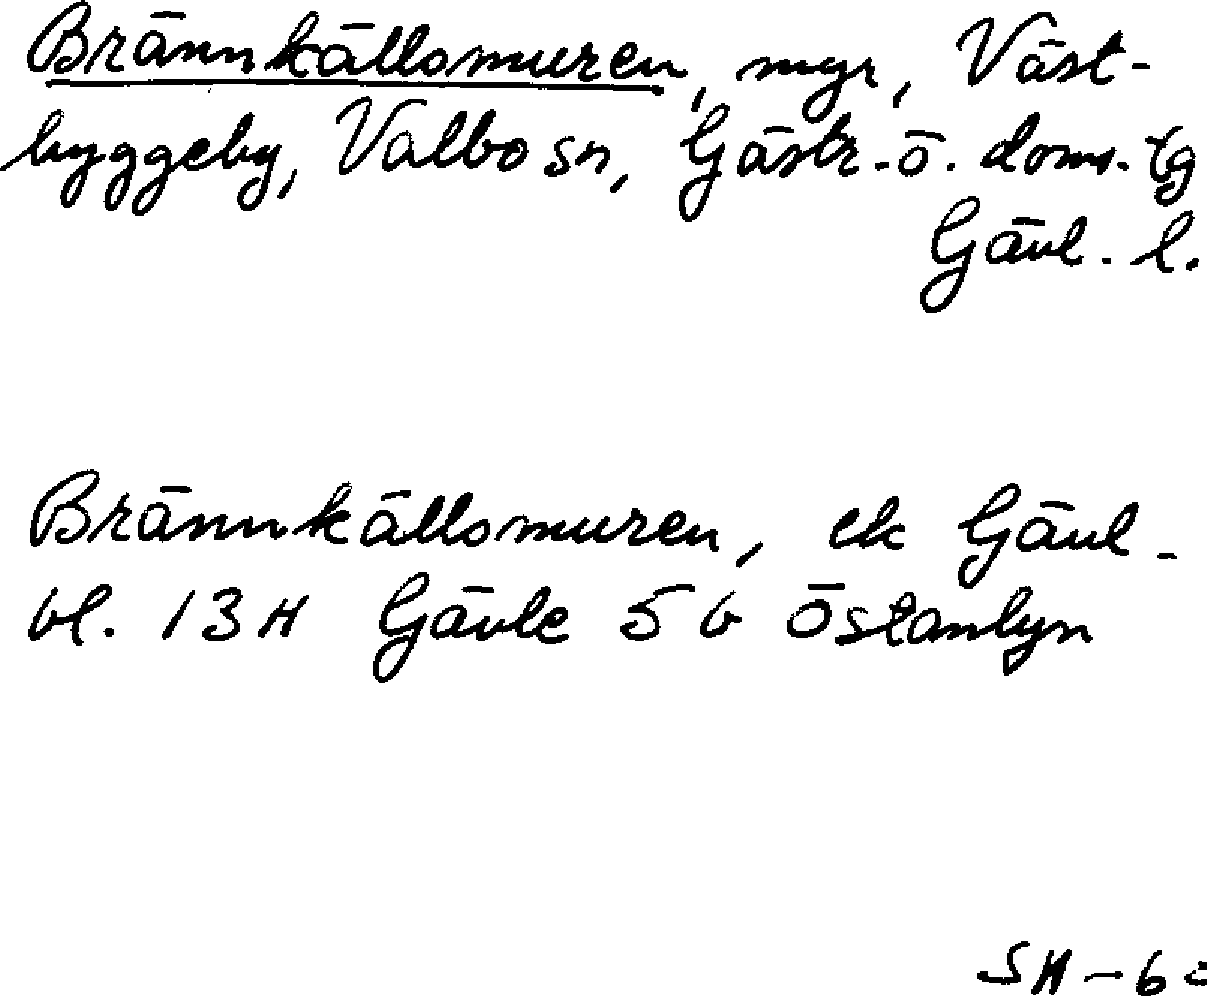 Brännkällomuren, myr, Väst-
byggeby, Valbo sn, Gästr. ö. doms. tg
Gävl. l.
Brännkällomuren, ek Gävl-
bl. 13H Gävle 5b Östanbyn
SH-6